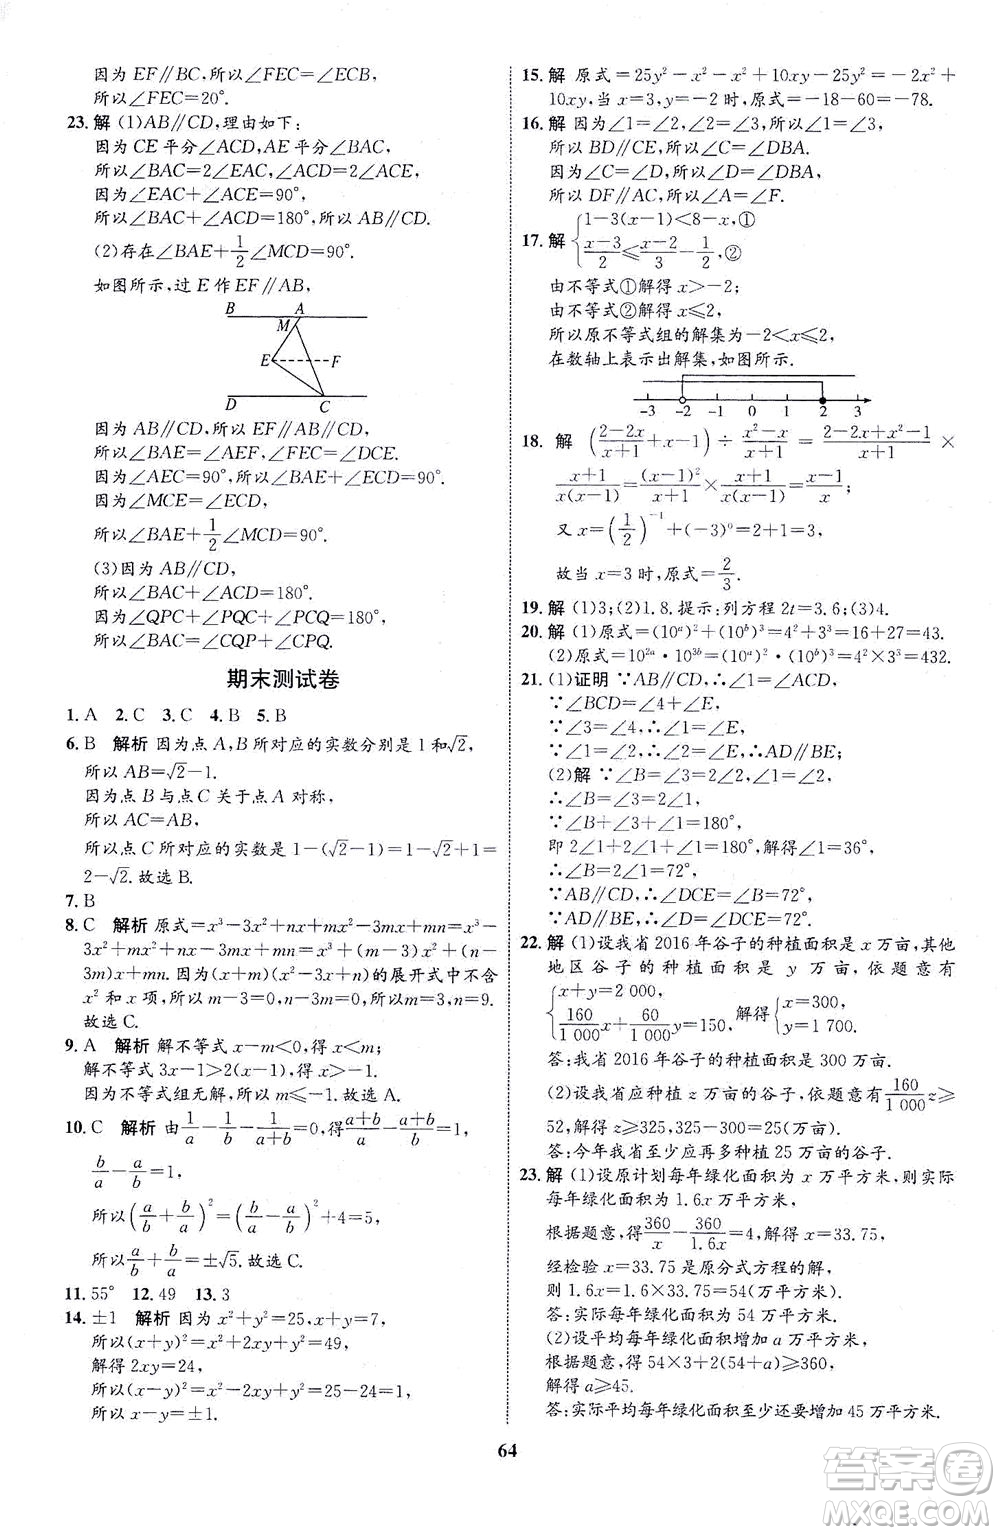 因为 EF∥BC,所以∠FEC=∠ECB,
所以∠FEC=20°.
23.解 (1)AB∥CD,理由如下:
因为 CE 平分∠ACD,AE 平分∠BAC,
所以∠BAC=2∠EAC,∠ACD=2∠ACE.
因为∠EAC+∠ACE=90°,
所以∠BAC+∠ACD=180°,所以 AB∥CD.
(2)存在∠BAE+1/2∠MCD=90°.
如图所示,过 E 作 EF∥AB,
B A
M
E F
D C
因为 AB∥CD,所以 EF∥AB∥CD,
所以∠BAE=∠AEF,∠FEC=∠DCE.
因为∠AEC=90°,所以∠BAE+∠ECD=90°.
因为∠MCE=∠ECD,
所以∠BAE+1/2∠MCD=90°.
(3)因为 AB∥CD,
所以∠BAC+∠ACD=180°.
因为∠QPC+∠PQC+∠PCQ=180°,
所以∠BAC=∠CQP+∠CPQ.
期末测试卷
1.A 2.C 3.C 4.B 5.B
6.B 解析 因为点 A,B 所对应的实数分别是 1 和√2,
所以 AB=√2-1.
因为点 B 与点 C 关于点 A 对称,
所以 AC=AB,
所以点 C 所对应的实数是 1-(√2-1)=1-√2+1=
2-√2.故选 B.
7.B
8.C 解析 原式=x³-3x²+nx+mx²-3mx+mn=x³-
3x²+mx²+nx-3mx+mn=x³+(m-3)x²+(n-
3m)x+mn.因为(x+m)(x²-3x+n)的展开式中不含
x² 和 x 项,所以 m-3=0,n-3m=0,所以 m=3,n=9.
故选 C.
9.A 解析 解不等式 x-m<0,得 x<m;
解不等式 3x-1>2(x-1),得 x>-1.
因为不等式组无解,所以 m≤-1.故选 A.
10.C 解析 由1/a-1/b-1/(a+b)=0,得(a+b)/a-(a+b)/b=1,
b/a-a/b=1,
所以(a/b+b/a)²=(b/a-a/b)²+4=5,
所以a/b+b/a=±√5.故选 C.
11.55° 12.49 13.3
14.±1 解析 因为 x²+y²=25,x+y=7,
所以(x+y)²=x²+y²+2xy=49,
解得 2xy=24,
所以(x-y)²=x²+y²-2xy=25-24=1,
所以 x-y=±1.
15.解 原式=25y²-x²-x²+10xy-25y²=-2x²+
10xy,当 x=3,y=-2 时,原式=-18-60=-78.
16.解 因为∠1=∠2,∠2=∠3,所以∠1=∠3,
所以 BD∥CE,所以∠C=∠DBA.
因为∠C=∠D,所以∠D=∠DBA,
所以 DF∥AC,所以∠A=∠F.
17.解 {1-3(x-1)<8-x,①
(x-3)/2≤(x-2)/3-1/2,②
由不等式①解得 x>-2;
由不等式②解得 x≤2,
所以原不等式组的解集为-2<x≤2,
在数轴上表示出解集,如图所示.
-3 -2 -1 0 1 2 3
18.解 ((2-2x)/(x+1)+x-1)÷(x²-x)/(x+1)=(2-2x+x²-1)/(x+1)×
(x+1)/(x(x-1))=(x-1)²/(x+1)×(x+1)/(x(x-1))=(x-1)/x;
又 x=(1/2)⁻¹+(-3)⁰=2+1=3,
故当 x=3 时,原式=2/3.
19.解 (1)3;(2)1.8.提示:列方程 2t=3.6;(3)4.
20.解 (1)原式=(10ᵃ)²+(10ᵇ)³=4²+3³=16+27=43.
(2)原式=10²ᵃ·10³ᵇ=(10ᵃ)²·(10ᵇ)³=4²×3³=432.
21.(1)证明 ∵AB∥CD,∴∠1=∠ACD,
∵∠BCD=∠4+∠E,
∵∠3=∠4,∴∠1=∠E,
∵∠1=∠2,∴∠2=∠E,∴AD∥BE;
(2)解 ∵∠B=∠3=2∠1=2∠2,
∴∠B=∠3=2∠1,
∵∠B+∠3+∠1=180°,
即 2∠1+2∠1+∠1=180°,解得∠1=36°,
∴∠B=2∠1=72°,
∵AB∥CD,∴∠DCE=∠B=72°,
∵AD∥BE,∴∠D=∠DCE=72°.
22.解 (1)设我省 2016 年谷子的种植面积是 x 万亩,其他
地区谷子的种植面积是 y 万亩,依题意有
{x+y=2 000,
160/1 000 x+60/1 000 y=150, 解得{x=300,
y=1 700.
答:我省 2016 年谷子的种植面积是 300 万亩.
(2)设我省应种植 z 万亩的谷子,依题意有160/1 000 z≥
52,解得 z≥325,325-300=25(万亩).
答:今年我省至少应再多种植 25 万亩的谷子.
23.解 (1)设原计划每年绿化面积为 x 万平方米,则实际
每年绿化面积为 1.6x 万平方米,
根据题意,得360/x-360/1.6x=4,解得 x=33.75,
经检验 x=33.75 是原分式方程的解,
则 1.6x=1.6×33.75=54(万平方米).
答:实际每年绿化面积为 54 万平方米.
(2)设平均每年绿化面积增加 a 万平方米,
根据题意,得 54×3+2(54+a)≥360,
解得 a≥45.
答:实际平均每年绿化面积至少还要增加 45 万平方米.
64
答案圈
MXQE.COM